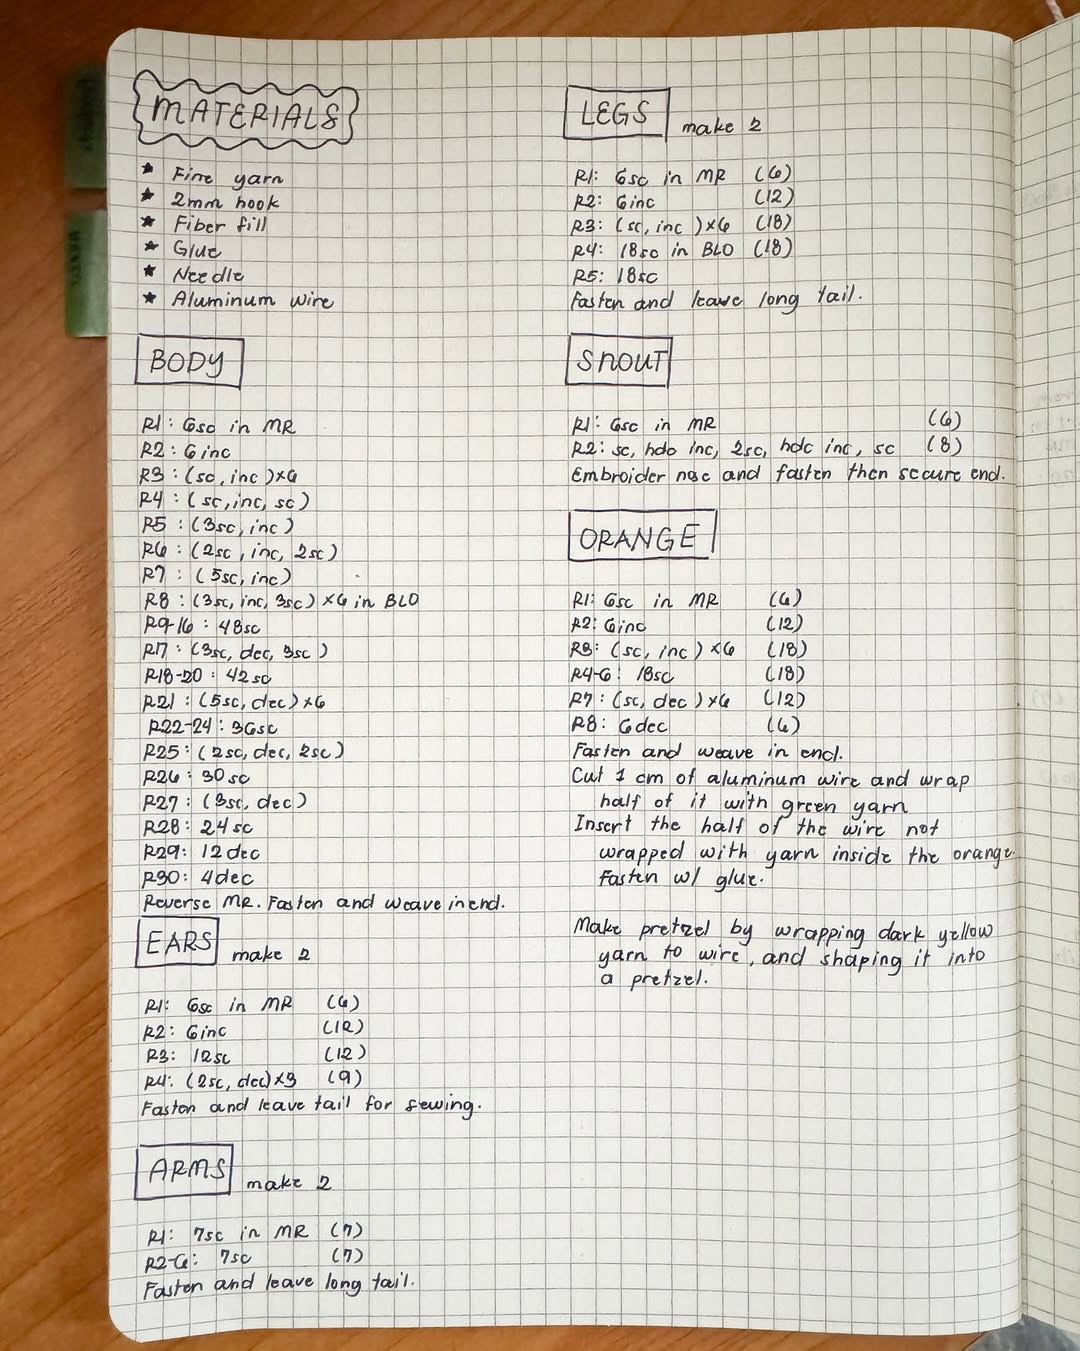 MATERIALS
★ Fine yarn
★ 2mm hook
★ Fiber fill
★ Glue
★ Needle
★ Aluminum wire
BODY
R1: 6sc in MR
R2: 6inc
R3: (sc, inc)×6
R4: (sc, inc, sc)
R5: (3sc, inc)
R6: (2sc, inc, 2sc)
R7: (5sc, inc)
R8: (3sc, inc, 3sc) ×6 in BLO
R9-16: 48sc
R17: (3sc, dec, 3sc)
R18-20: 42sc
R21: (5sc, dec)×6
R22-24: 36sc
R25: (2sc, dec, 2sc)
R26: 30sc
R27: (3sc, dec)
R28: 24sc
R29: 12dec
R30: 4dec
Reverse MR. Fasten and weave in end.
EARS make 2
R1: 6sc in MR (6)
R2: 6inc (12)
R3: 12sc (12)
R4: (2sc, dec)×3 (9)
Fasten and leave tail for sewing.
ARMS make 2
R1: 7sc in MR (7)
R2-6: 7sc (7)
Fasten and leave long tail.
LEGS make 2
R1: 6sc in MR (6)
R2: 6inc (12)
R3: (sc, inc)×6 (18)
R4: 18sc in BLO (18)
R5: 18sc
Fasten and leave long tail.
SNOUT
R1: 6sc in MR (6)
R2: sc, hdc inc, 2sc, hdc inc, sc (8)
Embroider nose and fasten then secure end.
ORANGE
R1: 6sc in MR (6)
R2: 6inc (12)
R3: (sc, inc)×6 (18)
R4-6: 18sc (18)
R7: (sc, dec)×6 (12)
R8: 6dec (6)
Fasten and weave in end.
Cut 1 cm of aluminum wire and wrap
half of it with green yarn
Insert the half of the wire not
wrapped with yarn inside the orange.
Fasten w/ glue.
Make pretzel by wrapping dark yellow
yarn to wire, and shaping it into
a pretzel.